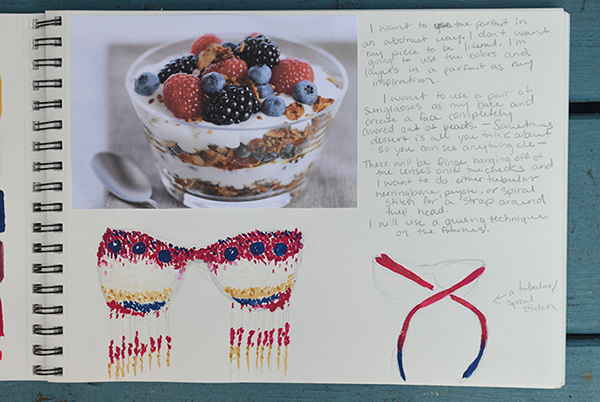 I want to use the parfait in
an abstract way. I don't want
my piece to be literal. I'm
going to use the colors and
layers in a parfait as my
inspiration.
I want to use a pair of
sunglasses as my base and
create a face completely
covered out of beads. Sometimes
dessert is all you think about
so you can see anything else-
There will be fringe hanging off of
the lenses onto the cheeks and
I want to do either tubular
herringbone, peyote, or spiral
stitch for a strap around
head.
I will use a glueing technique
on the frames.
a tubular/
spiral
stitch